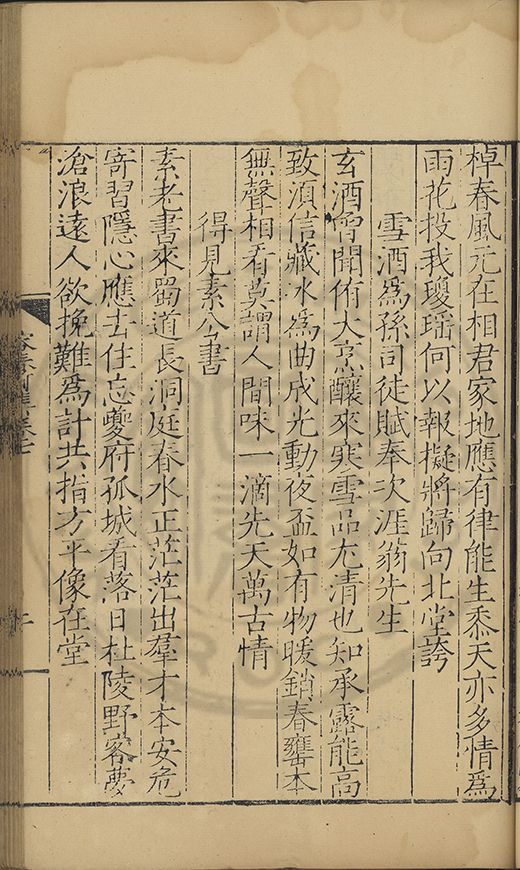 棹春風元在相君家地應有律能生黍天亦多情爲
雨花投我瓊瑶何以報擬將歸向北堂誇
雪酒爲孫司徒賦奉次涯翁先生
玄酒曾聞侑大烹釀來寒雪品尤清也知承露能高
致湏信藏冰爲曲成光動夜盃如有物暖銷春甕本
無聲相看莫謂人間味一滴先天萬古情
得見素公書
素老書來蜀道長洞庭春水正茫茫出羣才本安危
寄習隱心應去住忘夔府孤城看落日杜陵野客夢
滄浪遠人欲挽難爲計共指方平像在堂